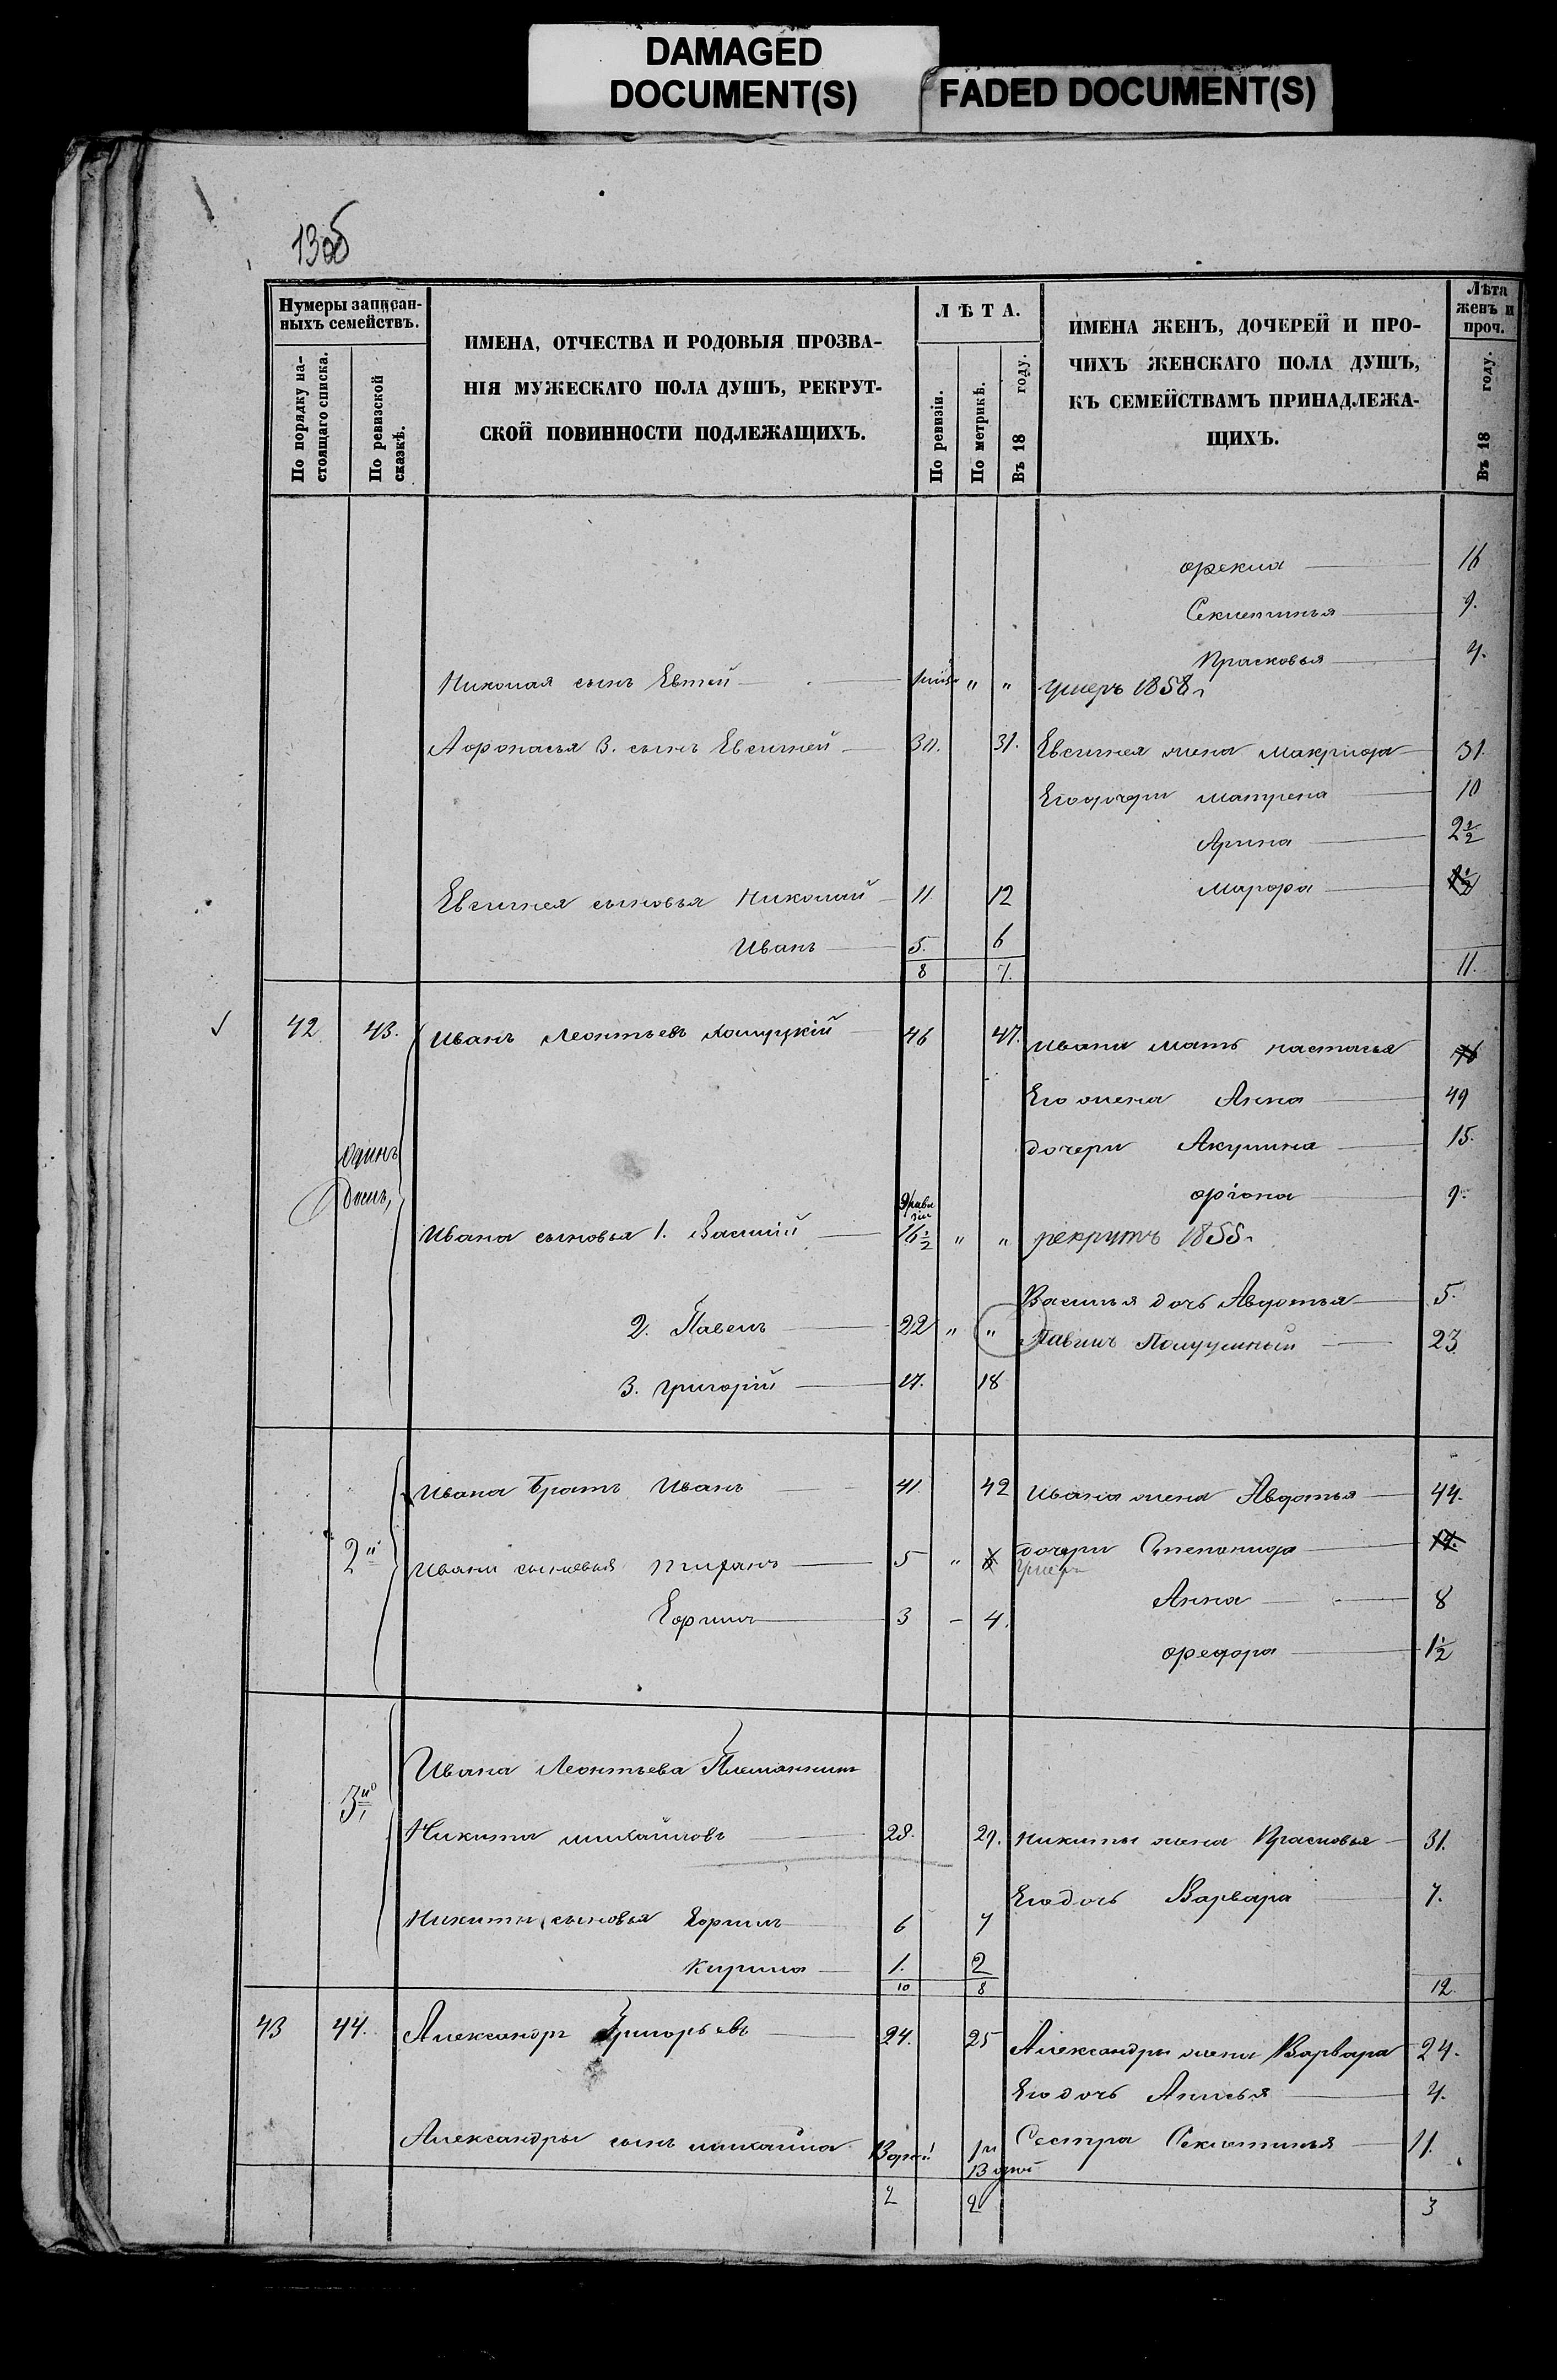 DAMAGED
DOCUMENT(S)
FADED DOCUMENT(S)
13об
Нумеры записан-
ныхъ семействъ.
По порядку на-
стоящаго списка.
По ревизской
сказкѣ.
ИМЕНА, ОТЧЕСТВА И РОДОВЫЯ ПРОЗВА-
НІЯ МУЖЕСКАГО ПОЛА ДУШЪ, РЕКРУТ-
СКОЙ ПОВИННОСТИ ПОДЛЕЖАЩИХЪ.
ЛѢТА.
По ревизіи.
По метрикѣ.
Въ 18 году.
ИМЕНА ЖЕНЪ, ДОЧЕРЕЙ И ПРО-
ЧИХЪ ЖЕНСКАГО ПОЛА ДУШЪ,
КЪ СЕМЕЙСТВАМЪ ПРИНАДЛЕЖА-
ЩИХЪ.
Лѣта
женъ и
проч.
Въ 18 году.
Фекла 16
Секлетинья 9.
Прасковья 4.
Николая сынъ Евтей " " умеръ 1858 г
Афонасья 3. сынъ Евсигней 30. 31. Евсигнея жена Макрида 31.
Его дочери Матрена 10
Арина 2½
Марфа
Евсигнея сыновья Николай 11. 12
Иванъ 5. 6
8 7. 11.
42 43. Иванъ Леонтьевъ 46 47. Ивана мать Настасья 76
Его жена Анна 49
одинъ дочери Акулина 15.
домъ, Фіона 9.
Ивана сыновья 1. Василій 16½ " " рекрутъ 1855 г
Василья дочь Авдотья 5.
2. Павелъ 22 " " Павелъ 23.
3. Григорій 17. 18
Ивана братъ Иванъ 41. 42 Ивана жена Авдотья 44.
2й Ивана сыновья 5 " 6 дочери Степанида 14.
умеръ
Анна 8
Ефимъ 3 - 4.
Федора 1½
3й Ивана Леонтьева Племянникъ
Никита Михайловъ 28. 29. Никиты жена Прасковья 31.
Его дочь Варвара 7.
Никиты сыновья Ефимъ 6 7
Кирила 1. 2
10 8 12.
43 44. Александръ Григорьевъ 24. 25 Александры жена Варвара 24.
Его дочь Анисья 4.
Александры сынъ Михайла Сестра Секлетинья 11.
2 2 3